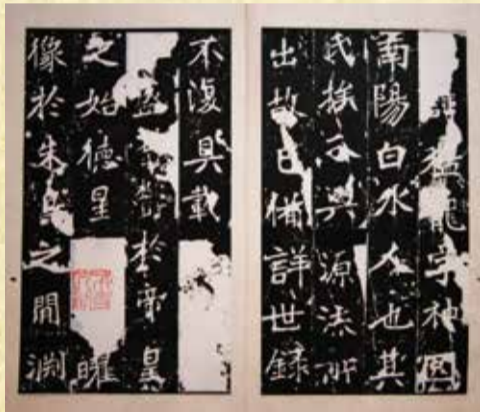 猛龍字神囧
南陽白水人也其
氏族分興源流所
出故已備詳世錄
不復具載
盛於帝皇
之始德星曜
像於朱之間淵